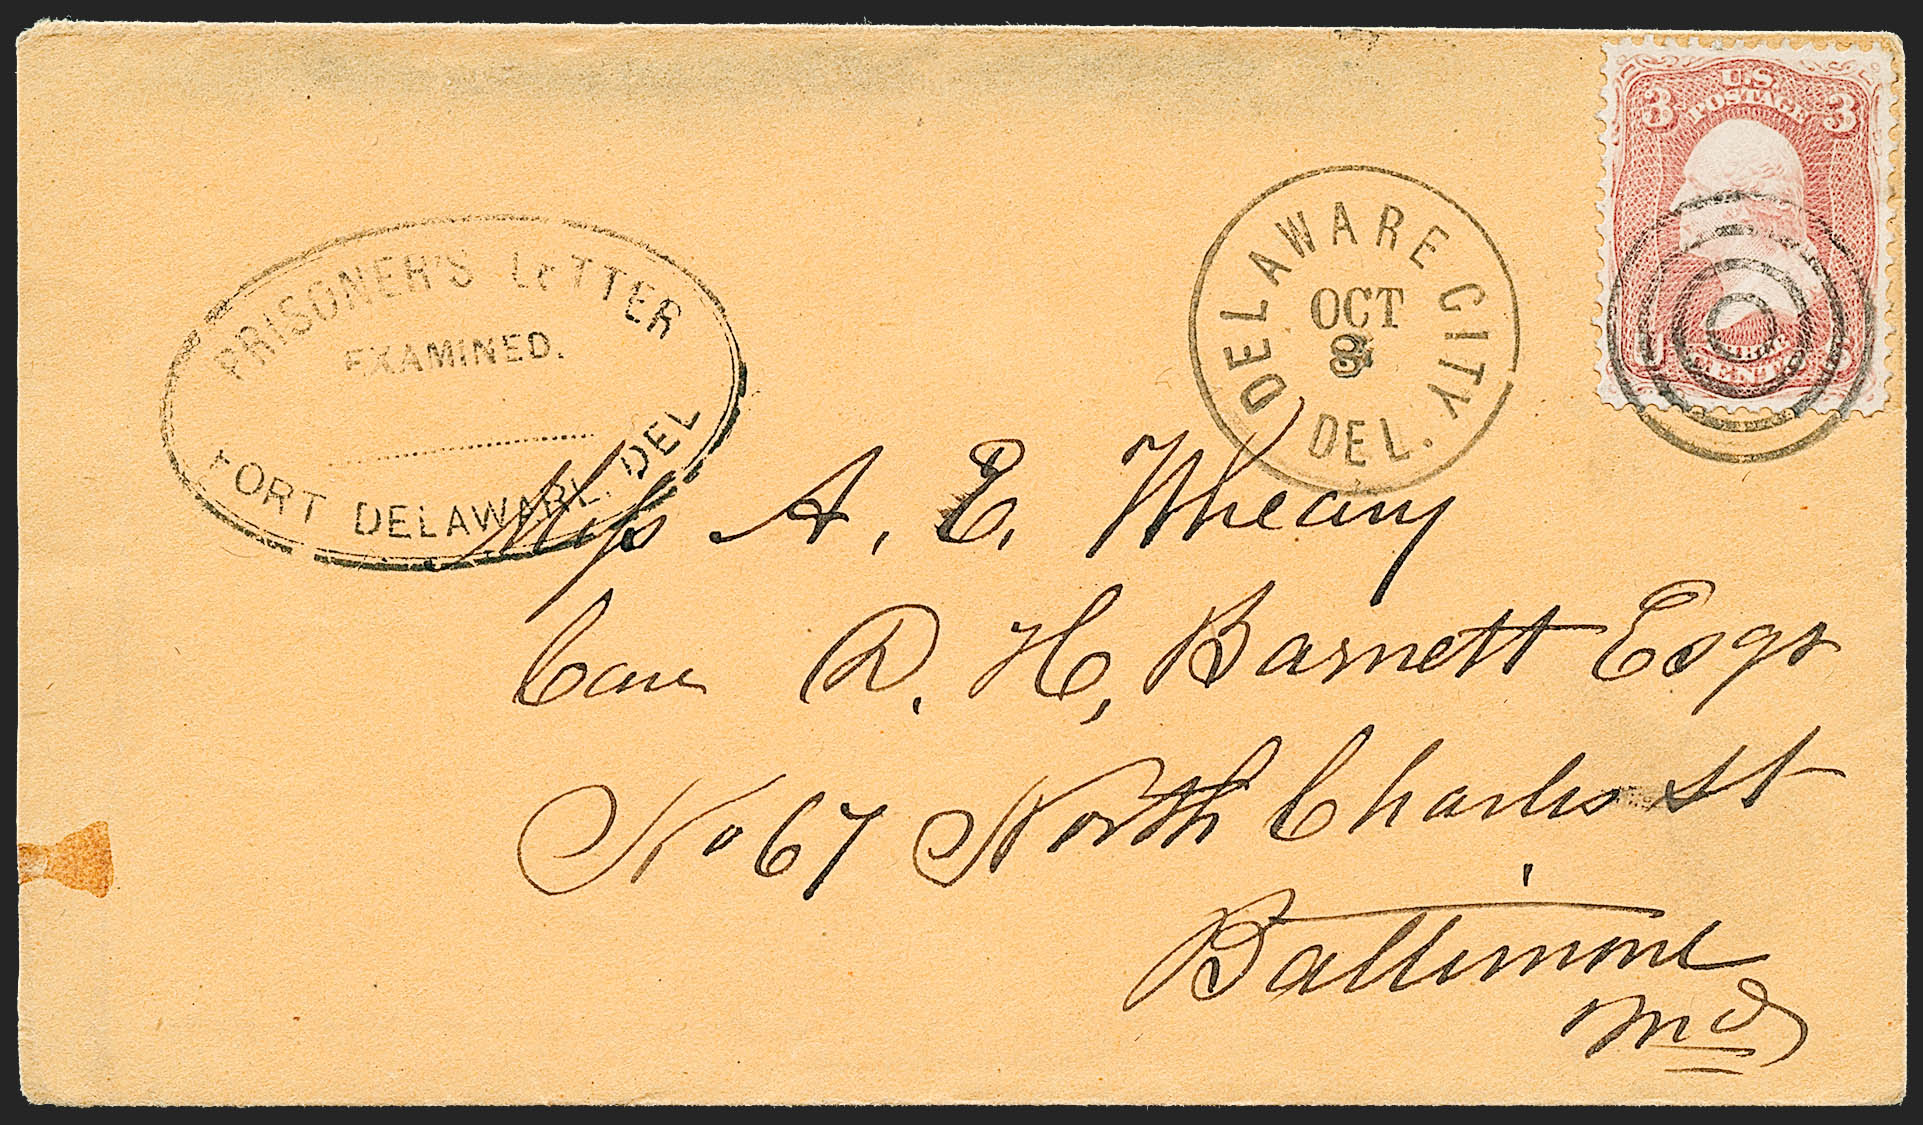 PRISONER'S LETTER
EXAMINED.
FORT DELAWARE. DEL
DELAWARE CITY
OCT
8
DEL.
U.S.
POSTAGE
3 3
THREE
U CENTS S
Miss A. E. Wheary
Care D. H, Barnett Esqr
No 67 North Charles St
Baltimore
Md